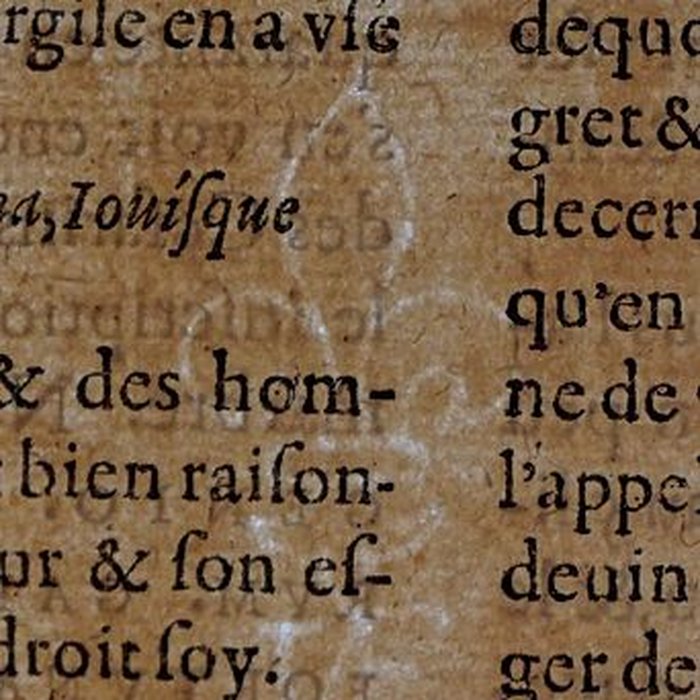 rgile en a vſe
na, Iouíſque
& des hom-
bien raiſon-
ur & ſon eſ-
droit ſoy.
dequo
gret &
decern
qu'en
ne de
l'appel
deuin
ger de